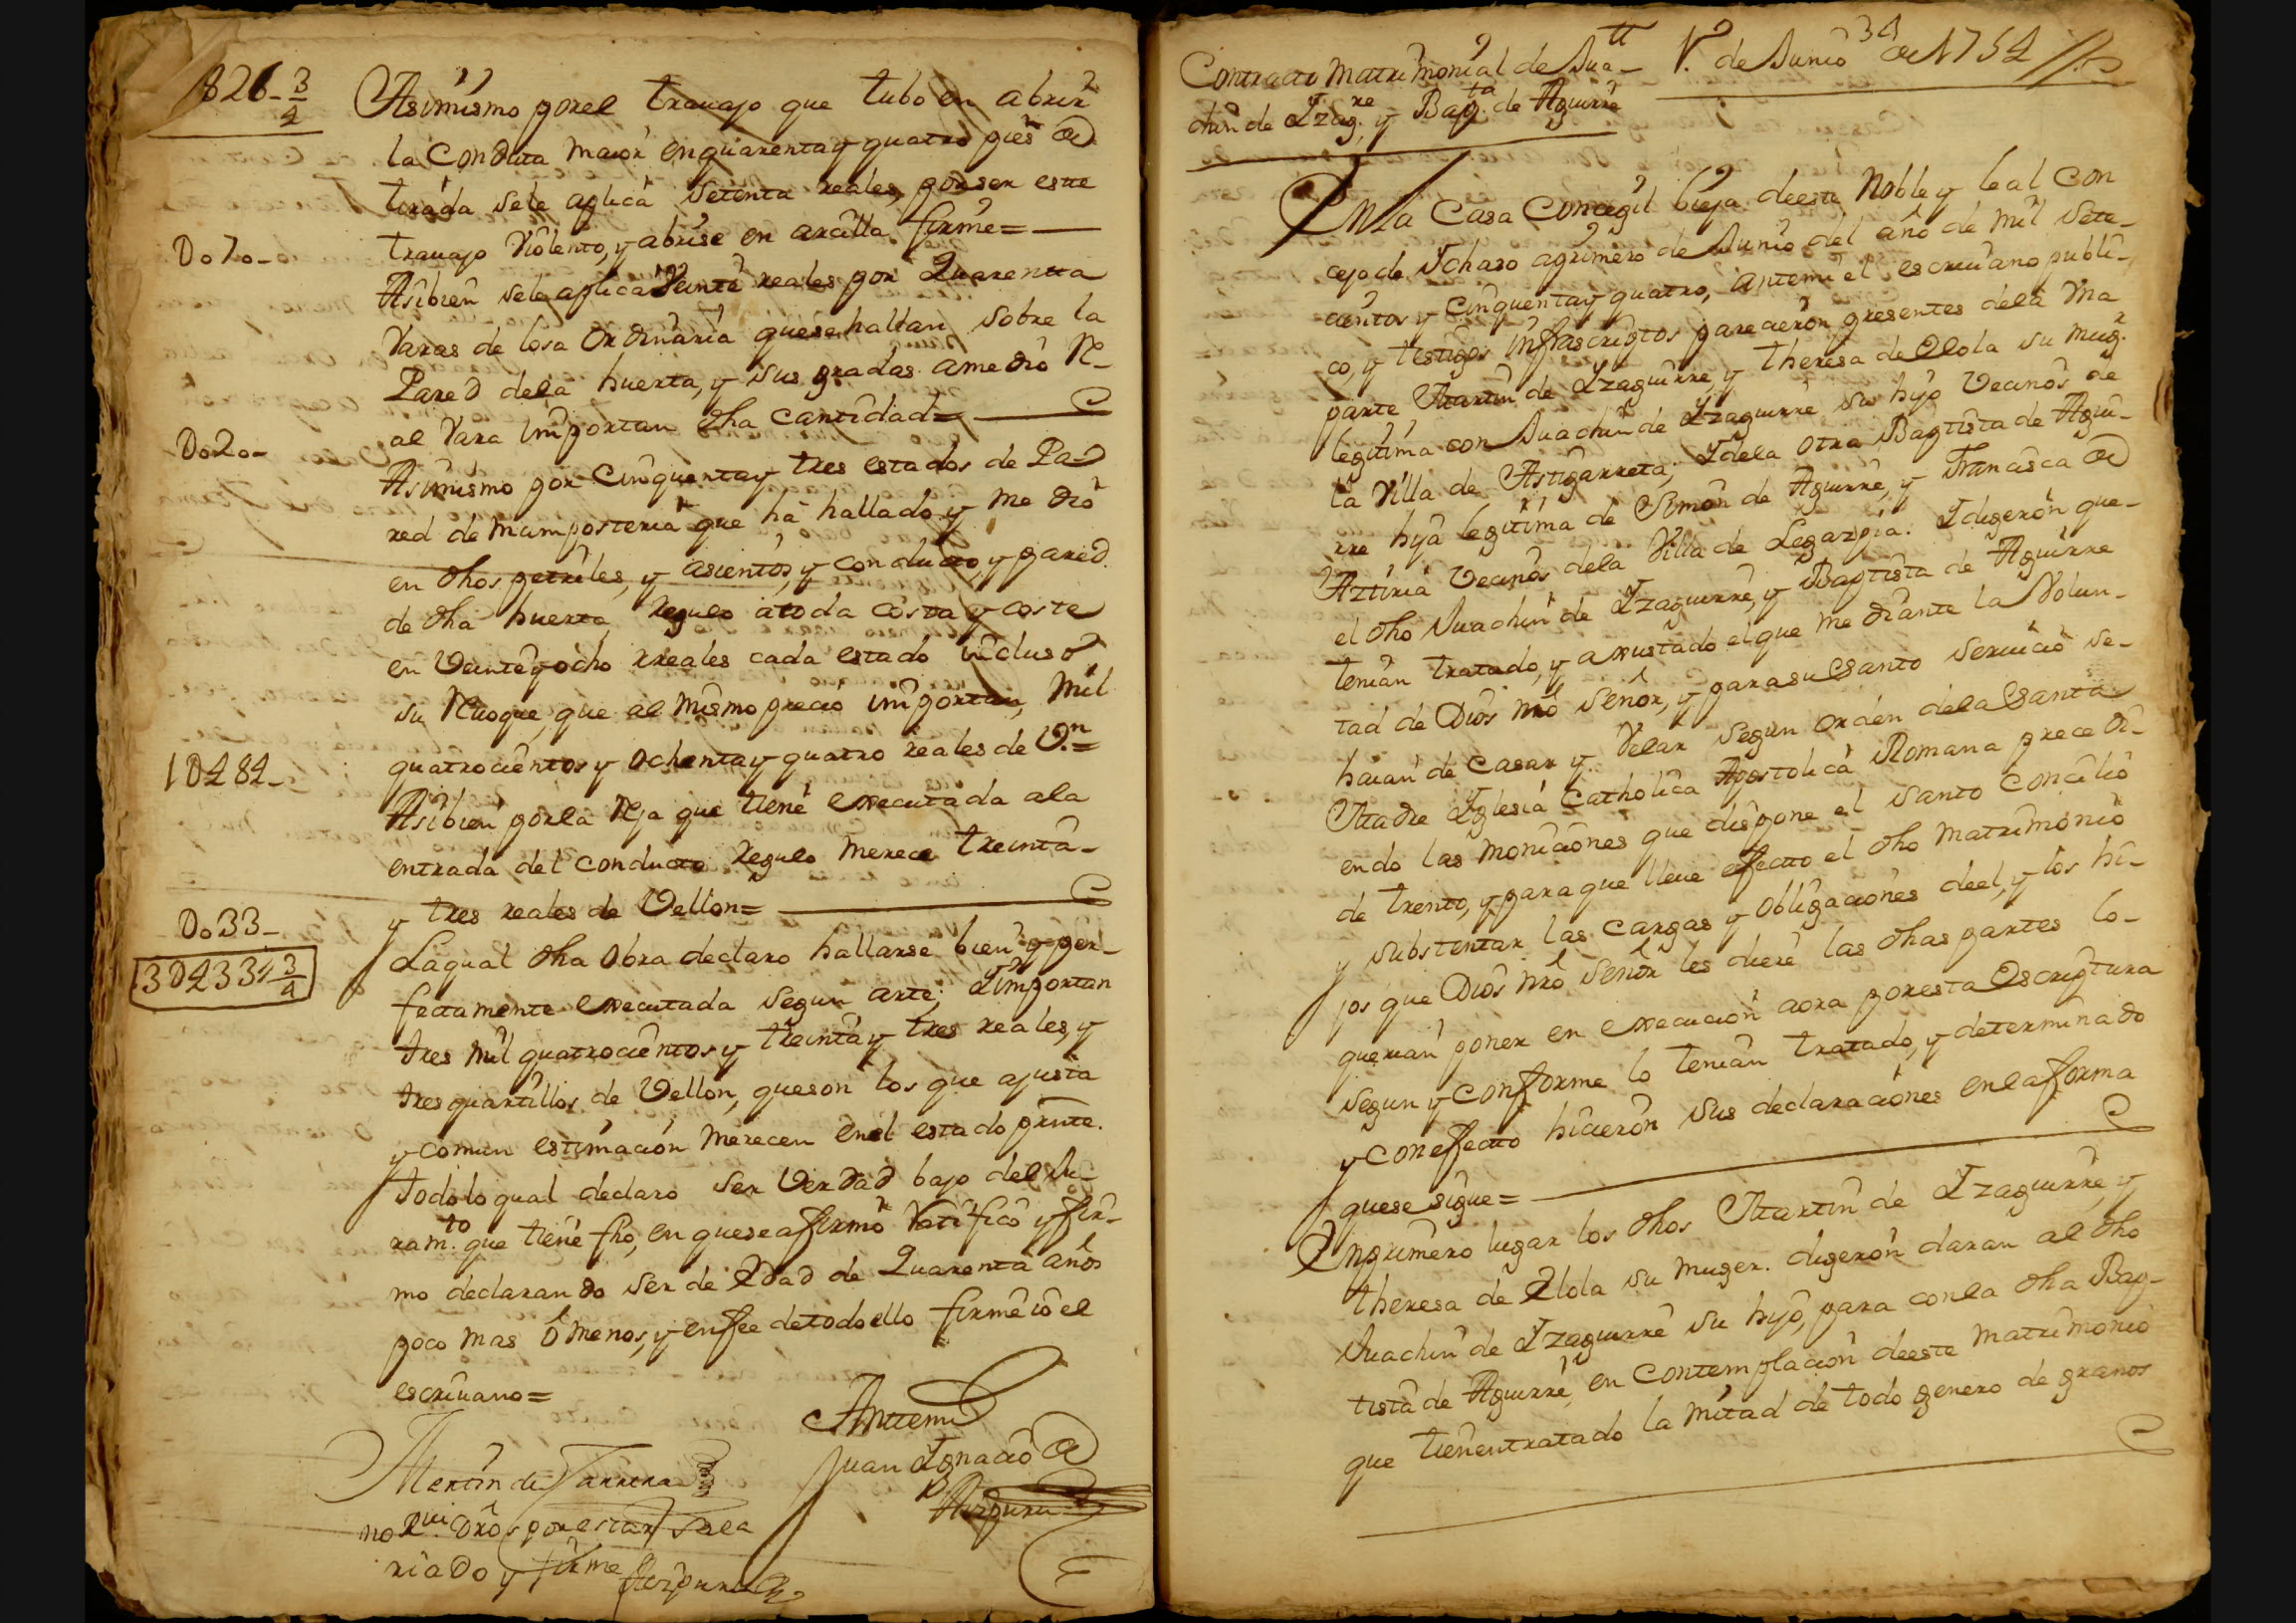 1826-3/4
Asimismo por el trauajo que tubo en abrir
la Conduta maior en quarenta y quatro pies de
tirada se le aplica setenta reales, por ser este
trauajo Violento, y abrise en arcilla firme=
Do70-
Asibien se le aplica Veinte reales por Quarenta
Varas de losa Ordinaria que se hallan sobre la
Pared dela huerta, y sus gradas a medio R-
al Vara importan dha cantidad=
Do20-
Asimismo por Cinquenta y tres estados de Pa
red de mamposteria que ha hallado y medio
en dhos petriles, y asientos, y conducto, y pared
de dha huerta, regulo a toda costa y coste
en Veinte y ocho rreales cada estado incluso
su Reuoque, que al mismo precio importan, Mil
quatrocientos y ochenta y quatro reales de Vn=
1D484-
Asibien por la Reja que tiene executada ala
entrada del conducto regulo merece treinta-
y tres reales de Vellon=
Do33-
La qual dha Obra declaro hallarse bien y per-
3D433 3/4
fectamente executada segun arte; Ymportan
tres mil quatrocientos y treinta y tres reales, y
tres quartillos de Vellon, que son los que ajusta
y comun estimacion merecen en el estado prnte.
todo lo qual declaro ser Verdad bajo del Ju-
ramto. que tiene fho, en que se afirmo Ratifico y fir-
mo declarando ser de Edad de Quarenta años
poco mas ô menos, y en fee de todo ello firme io el
escriuano=
Antemi
Martin de Larrea
Juan Ygnacio de
Aizpuru
no Rui dros por estar sala
riado y firme Aizpuru
Contracto Matrimonial de Jua-
chin de Yzagre y Bapta de Aguirre
1o. de Junio de 1754
34
En la Casa Concegil bieja de este Noble y leal Con
cejo de Ychaso a primero de Junio del año de mil sete-
cientos y Cinquenta y quatro, antemi el escriuano publi-
co, y testigos infrascriptos parecieron presentes dela Vna
parte Martin de Yzaguirre, y theresa de Elola su mugr.
legitima con Juachin de Yzaguirre su hijo Vecinos de
la Villa de Astigarreta; Y dela otra Baptista de Agui-
rre hija legitima de Simon de Aguirre, y Francisca de
Aztiria Vecinos dela Villa de Legazpia. Y digeron que-
el dho Juachin de Yzaguirre, y Baptista de Aguirre
tenian tratado, y axustado el que mediante la Volun-
tad de Dios nrô señor, y para su santo seruicio se-
haian de Casar y Velar segun orden dela Santa
Madre Yglesia Catholica Apostolica Romana precedi-
endo las moniciones que dispone el santo Concilio
de trento, y para que lleue efecto el dho matrimonio
y substentar las cargas y obligaciones de el, y los hi-
jos que Dios nrô señor les diere las dhas partes lo-
querian poner en execucion aora por esta Escriptura
segun y conforme lo tenian tratado, y determinado
y con efecto hicieron sus declaraciones en la forma
que se sigue=
En primero lugar los dhos Martin de Yzaguirre, y
theresa de Elola su muger. digeron daran al dho
Juachin de Yzaguirre su hijo, para con la dha Bap-
tista de Aguirre, en contemplacion de este matrimonio
que tienen tratado la mitad de todo genero de granos